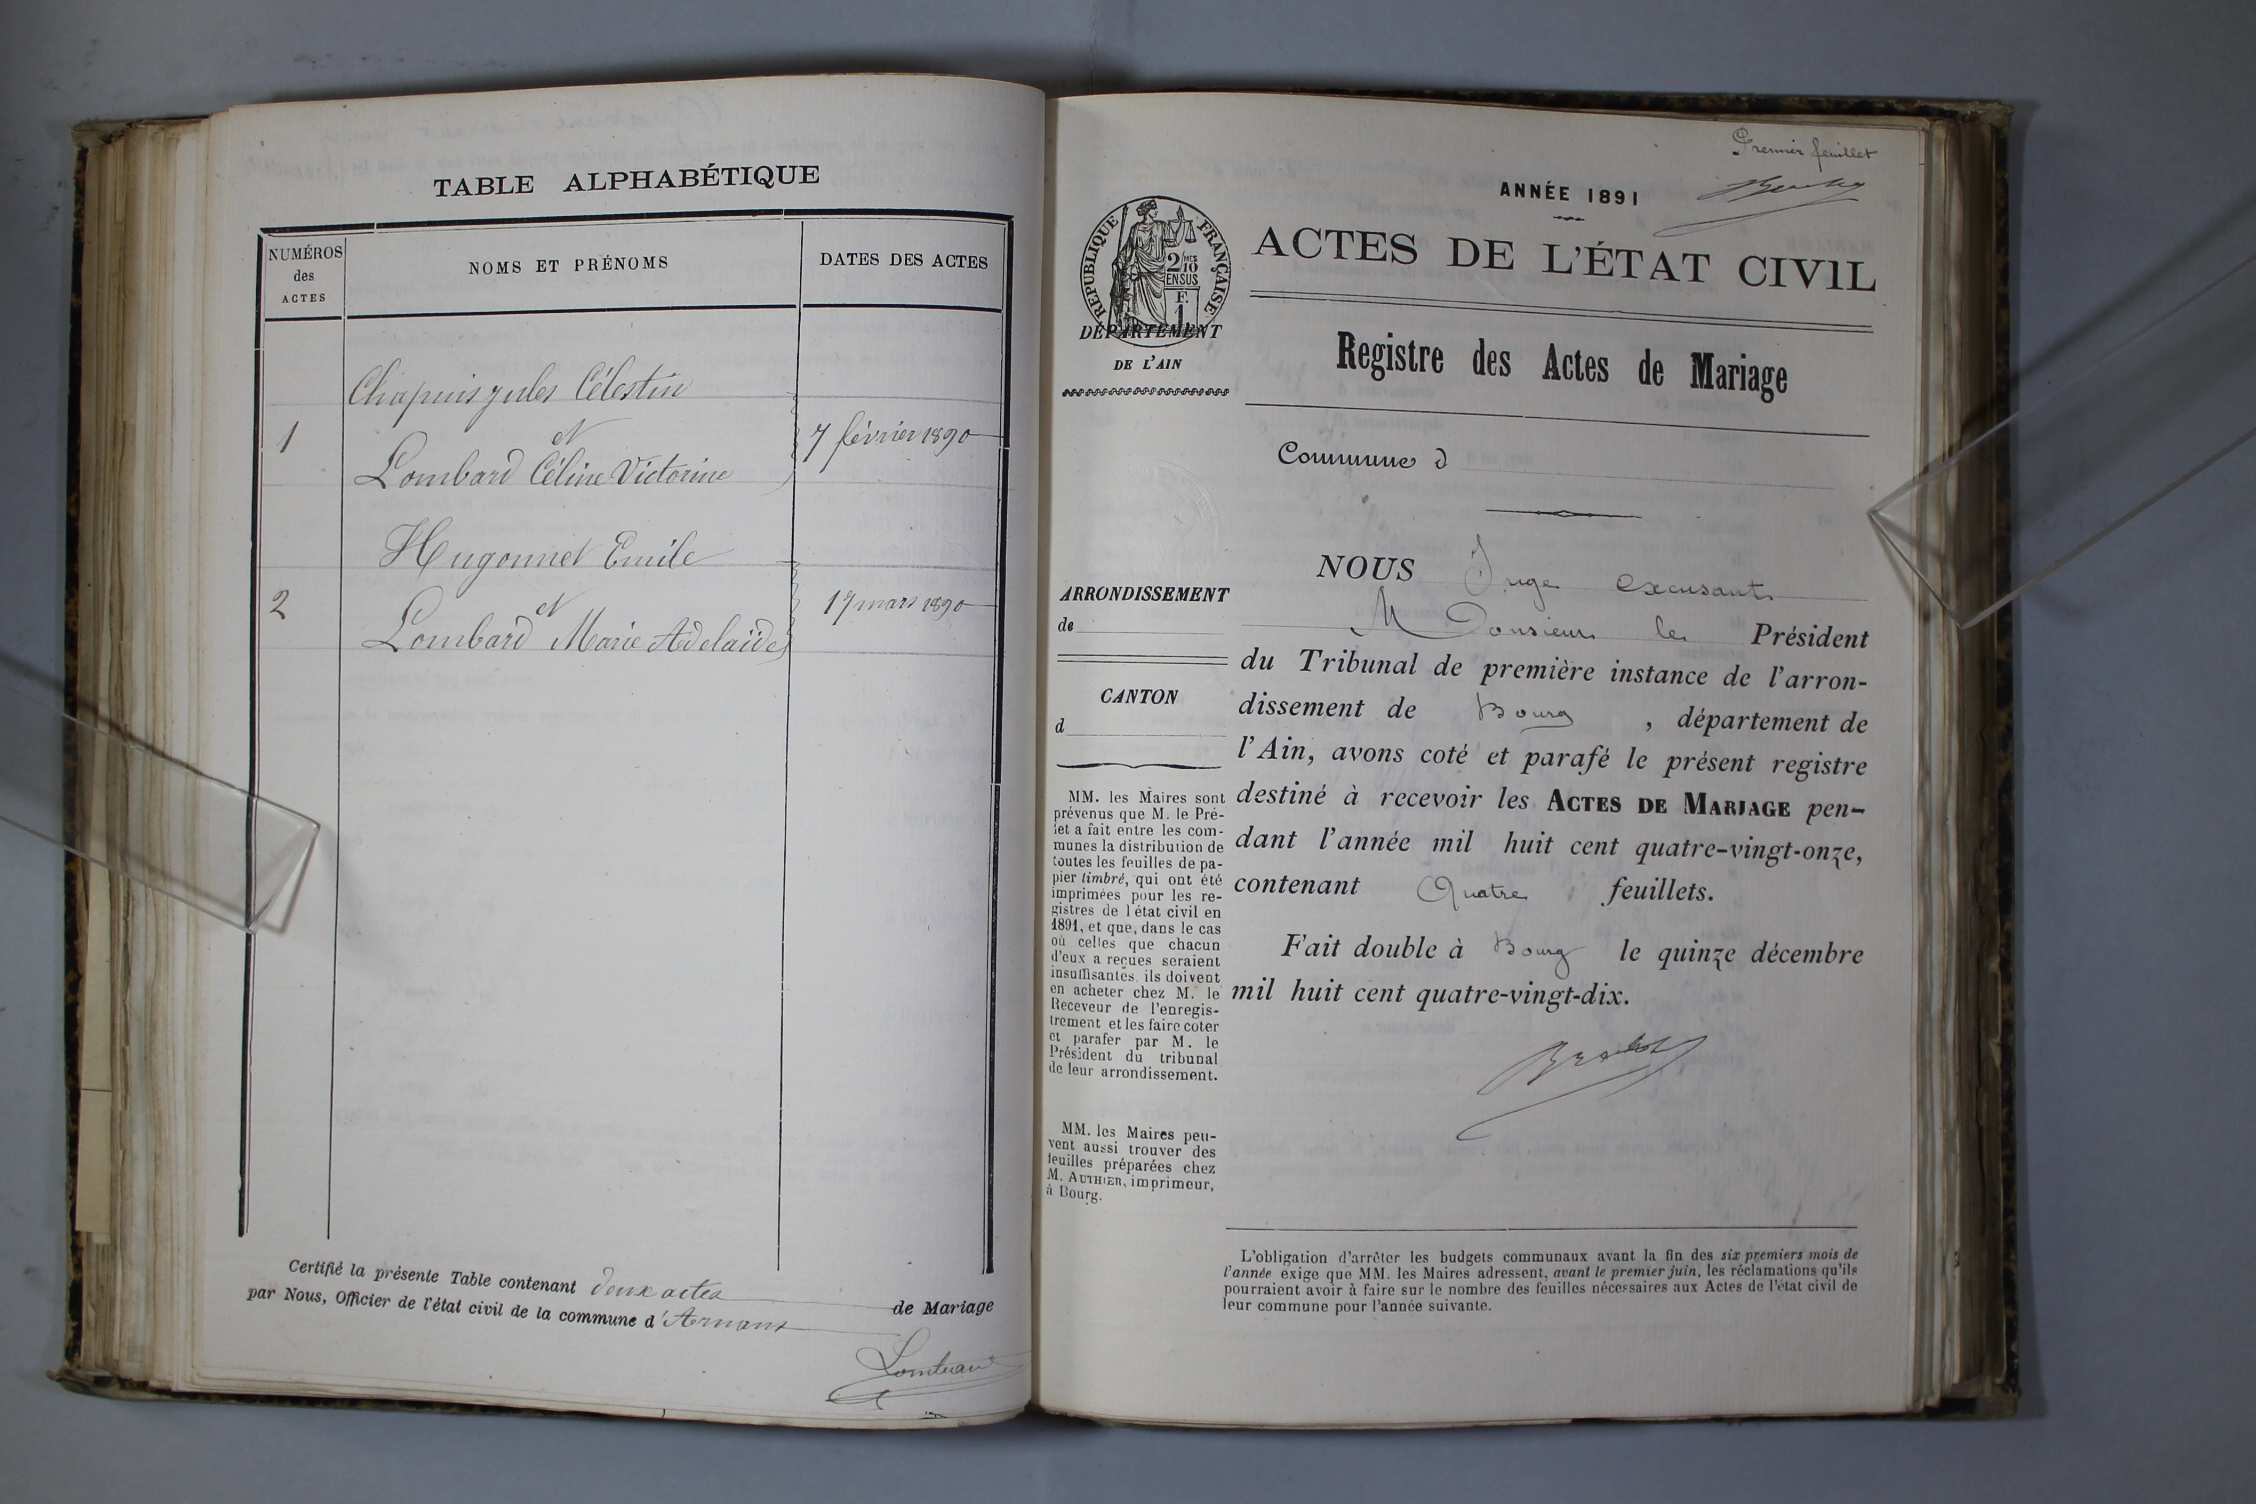 TABLE ALPHABÉTIQUE
NUMÉROS
des
ACTES
NOMS ET PRÉNOMS
DATES DES ACTES
Chapuis Jules Célestin
1
et
7 février 1890
Lombard Céline Victorine
Hugonnet Emile
2
et
17 mars 1890
Lombard Marie Adelaïde
Certifié la présente Table contenant deux actes de Mariage
par Nous, Officier de l'état civil de la commune d'Arnans
Premier feuillet
ANNÉE 1891
RÉPUBLIQUE FRANÇAISE
2/10
EN SUS
F.
1
ACTES DE L'ÉTAT CIVIL
DÉPARTEMENT
DE L'AIN
Registre des Actes de Mariage
Commune d
ARRONDISSEMENT
de
CANTON
d
MM. les Maires sont
prévenus que M. le Pré-
fet a fait entre les com-
munes la distribution de
toutes les feuilles de pa-
pier timbré, qui ont été
imprimées pour les re-
gistres de l'état civil en
1891, et que, dans le cas
où celles que chacun
d'eux a reçues seraient
insuffisantes, ils doivent
en acheter chez M. le
Receveur de l'enregis-
trement et les faire coter
et parafer par M. le
Président du tribunal
de leur arrondissement.
MM. les Maires peu-
vent aussi trouver des
feuilles préparées chez
M. AUTHIER, imprimeur,
à Bourg.
NOUS Juge excusant
Monsieur le Président
du Tribunal de première instance de l'arron-
dissement de Bourg, département de
l'Ain, avons coté et parafé le présent registre
destiné à recevoir les ACTES DE MARIAGE pen-
dant l'année mil huit cent quatre-vingt-onze,
contenant Quatre feuillets.
Fait double à Bourg le quinze décembre
mil huit cent quatre-vingt-dix.
L'obligation d'arrêter les budgets communaux avant la fin des six premiers mois de
l'année exige que MM. les Maires adressent, avant le premier juin, les réclamations qu'ils
pourraient avoir à faire sur le nombre des feuilles nécessaires aux Actes de l'état civil de
leur commune pour l'année suivante.